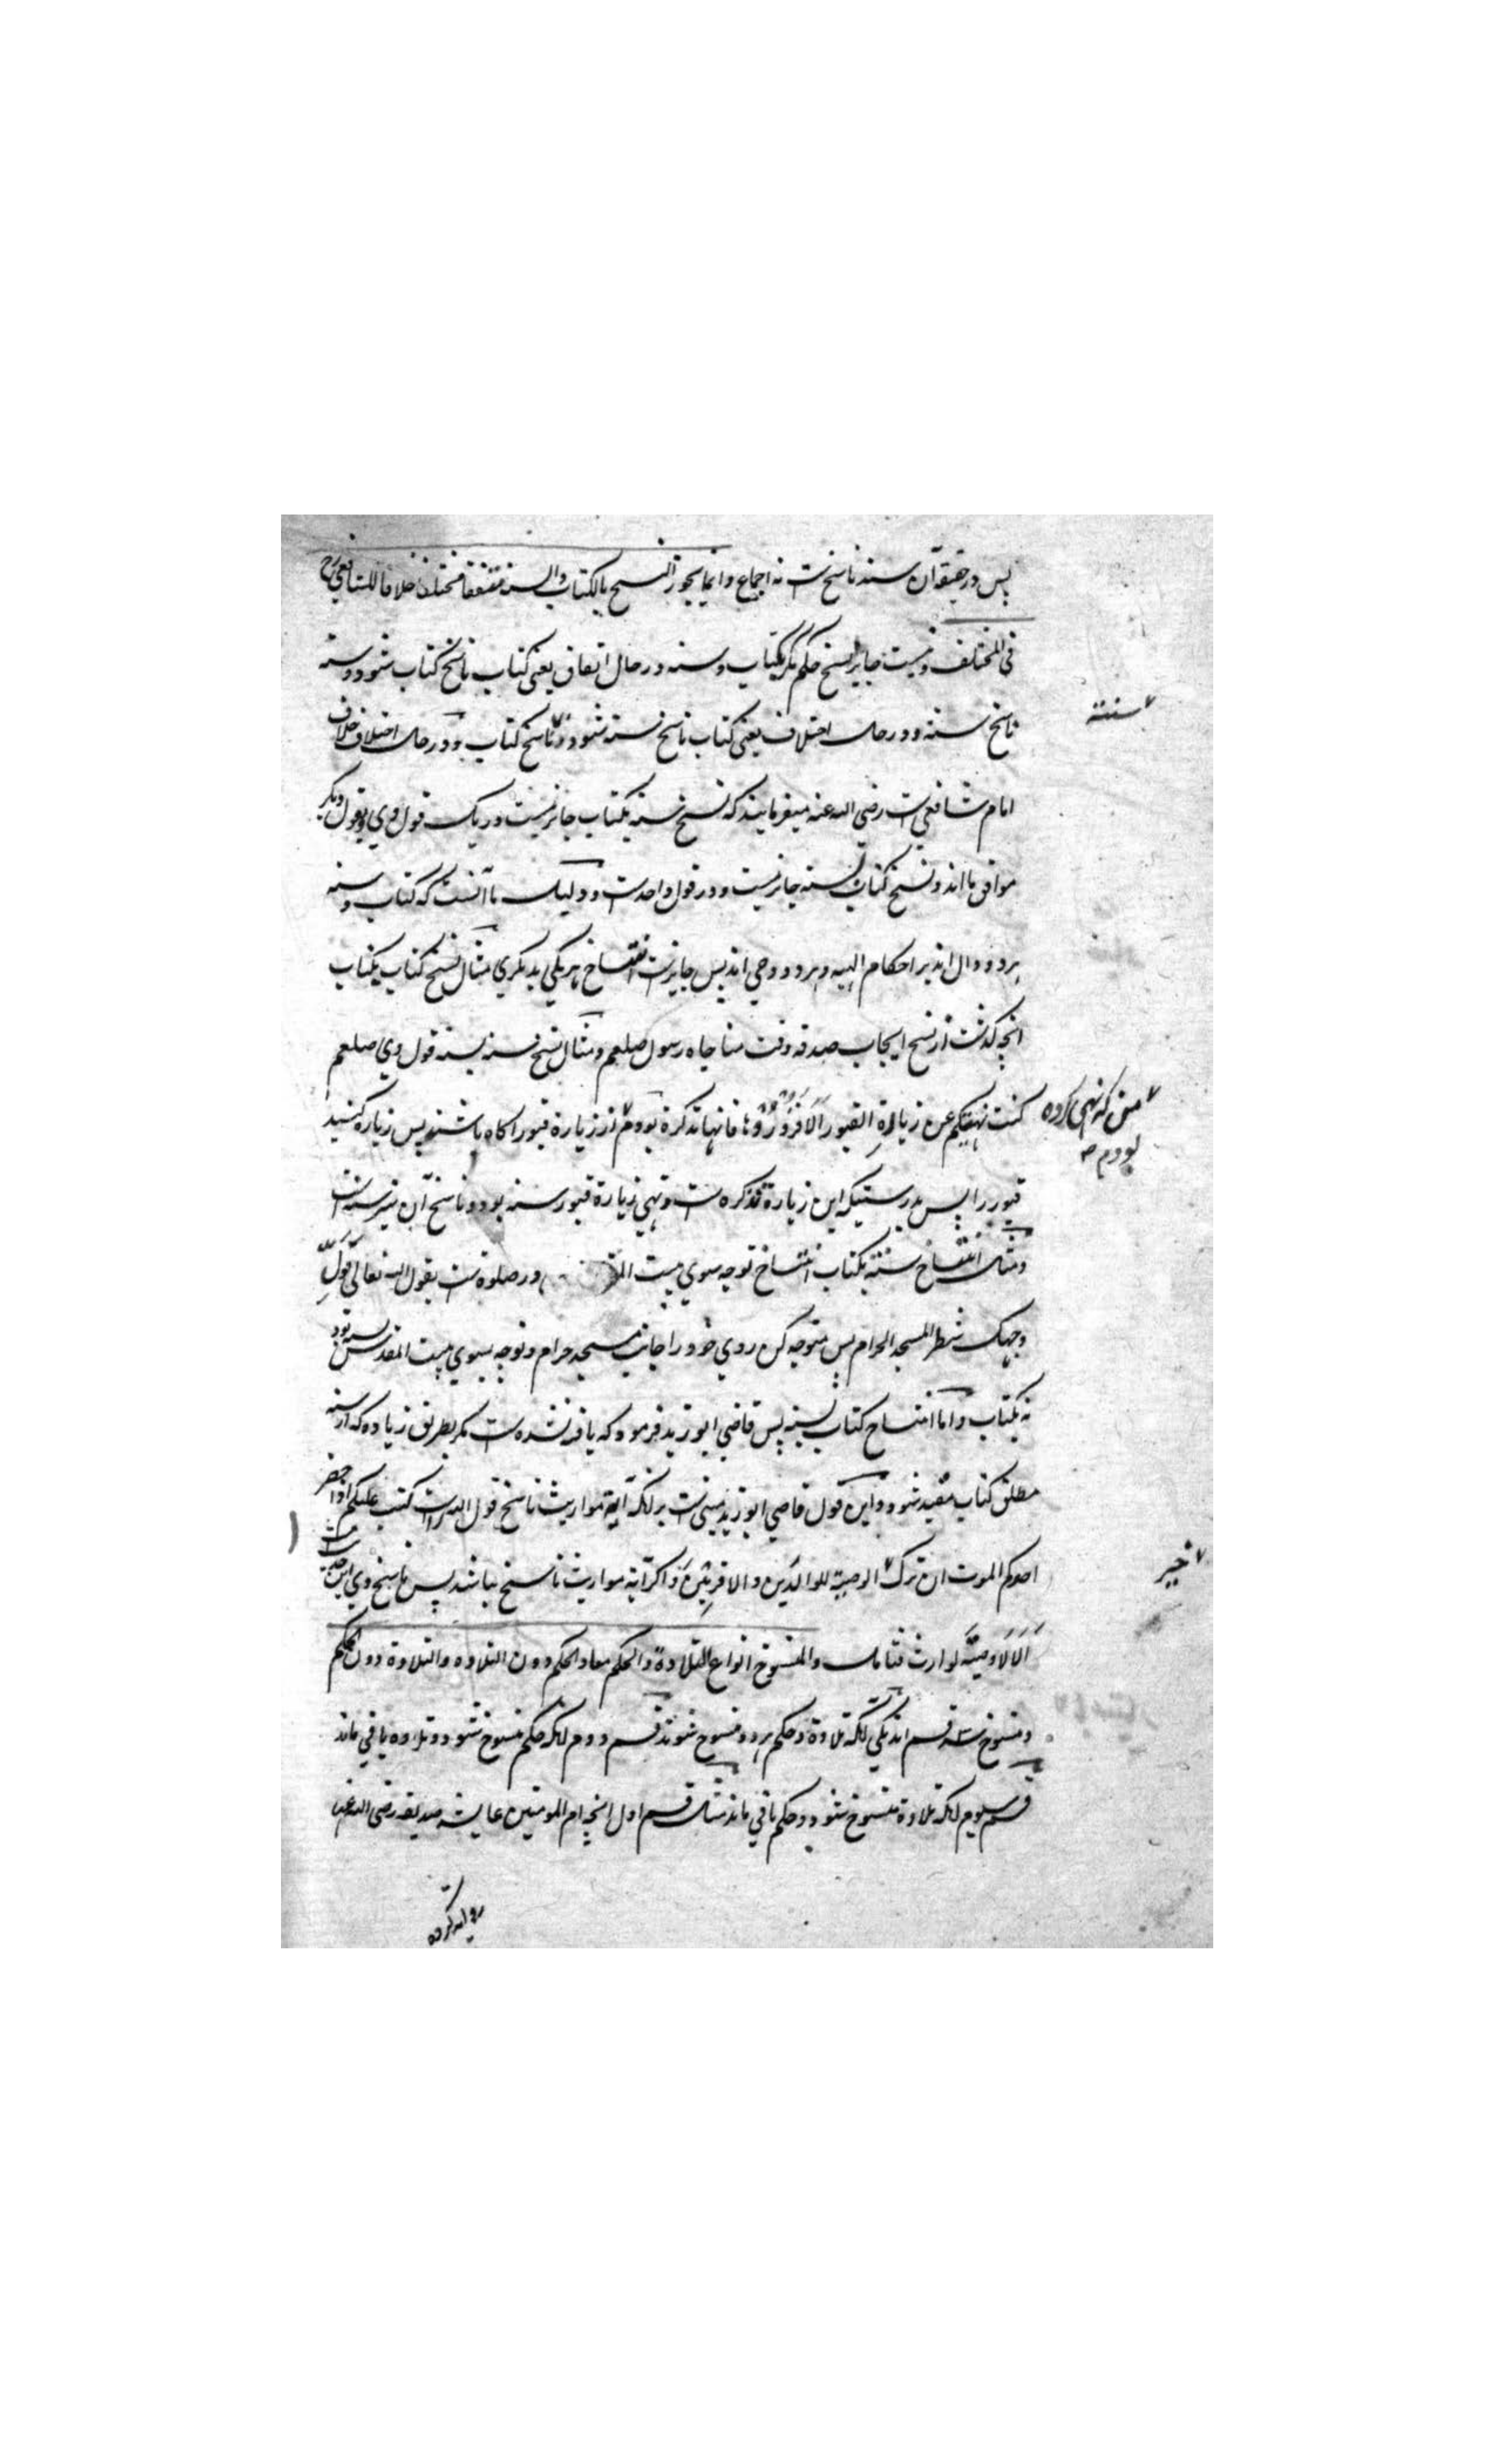 پس در حقیقة آن سند ناسخ ست نه اجماع وانما یجوز النسخ بالکتاب والسنة متفقا مختلفا خلافا للشافعی رح
فی المختلف و نیست جایز نسخ حکم مگر بکتاب و سنه در حال اتفاق یعنی کتاب ناسخ کتاب شود و سنه
ناسخ سنه و در حال اختلاف یعنی کتاب ناسخ سنه شود و ناسخ کتاب و در حال اختلاف خلاف
سنته
امام شافعی ست رضی الله عنه میفرمایند که نسخ سنه بکتاب جایز نیست در یک قول وی و بقول دیگر
موافق ما اند و نسخ کتاب بسنه جایز نیست و در قول واحدست و دلیل ما آنست که کتاب و سنه
هر دو دال اند بر احکام الهیه و هر دو وحی اند پس جایزست انتساخ هر یکی بدیگری مثال نسخ کتاب بکتاب
انچه گذشت از نسخ ایجاب صدقه وقت مناجاه رسول صلعم و مثال نسخ سنه بسنه قول وی صلعم
کنت نهیتکم عن زیارة القبور اَلَا فَزُورُوْها فانها تذکرة بودم از زیارة قبور اکاه باشند پس زیارة کنید
من که نهی کرده
بودم
قبور را پس بدرستیکه این زیارة تذکره ست و نهی زیارة قبور سنه بود و ناسخ آن نیز سنه است
و مثال انتساخ سنته بکتاب انتساخ توجه سوی بیت در صلوه ست بقول الله تعالی فَوَلِّ
وجهک شطر المسجد الحرام پس متوجه کن روی خود را جانب مسجد حرام و توجه بسوی بیت المقدس بسنه بود
نه بکتاب و اما انتساخ کتاب بسنه پس قاضی ابو زید فرموده که یافه نشده ست مگر بطریق زیاده که از سنه
مطلق کتاب مقید شود و این قول قاضی ابو زید مبنی ست برانکه آیة مواریث ناسخ قول الله است کتب علیکم اذا حضر
احدکم الموت ان ترک الوصیة للوالدَین والاقربِیْنَ و اکر آیة مواریث ناسخ نباشد پس ناسخ وی این حدیث ست
خیر
اَلَا لَا وصیَّةَ لوارث فتامل والمنسوخ انواع التلاوة والحکم معا والحکم دون التلاوه والتلاوة دون الحکم
و منسوخ سه قسم اند یکی انکه تلاوة و حکم هر دو منسوخ شوند قسم دوم انکه حکم منسوخ شود و تلاوه باقی ماند
قسم سیوم انکه تلاوة منسوخ شود و حکم باقی ماند مثال قسم اول انچه ام المومنین عایشه صدیقه رضی الله عنها
روایه کرده